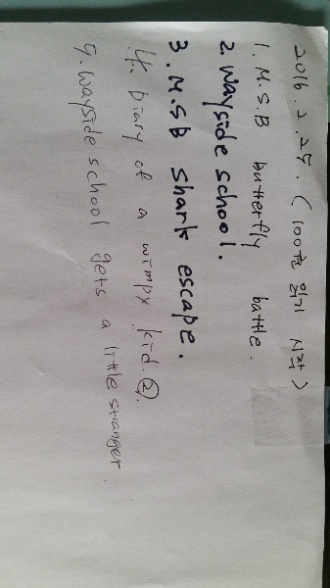 2016. 2. 25. (100권 읽기 시작)
1. M.S.B butterfly battle.
2. wayside school.
3. M.S.B shark escape.
4. Diary of a wimpy kid. ②
5. wayside school gets a little stranger